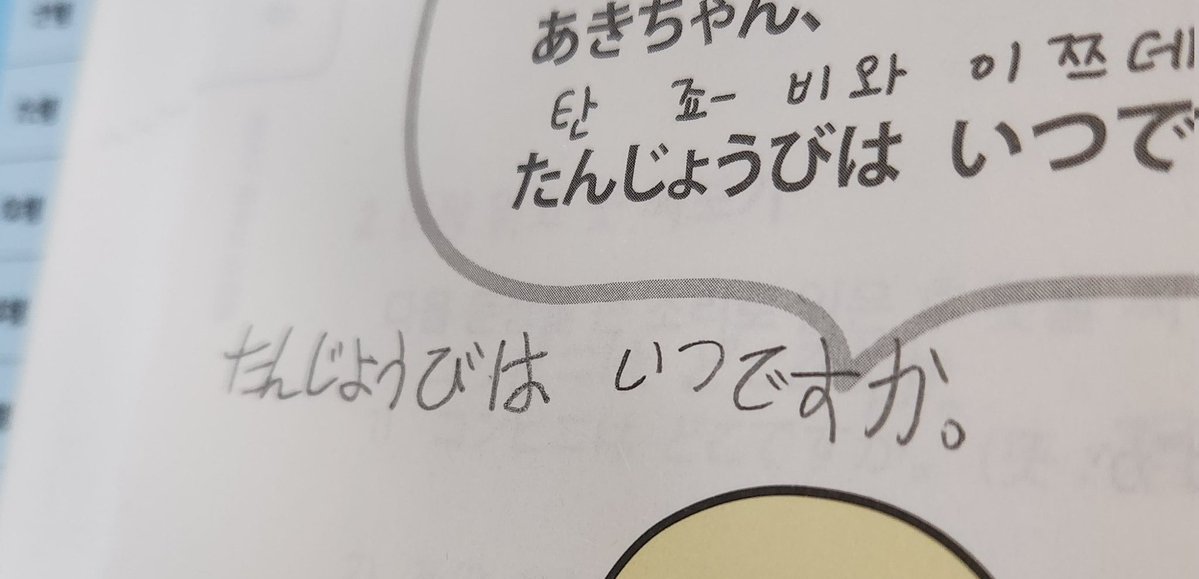 あきちゃん、
탄 죠ー 비와 이쯔데
たんじょうびは いつで
たんじょうびは いつですか。